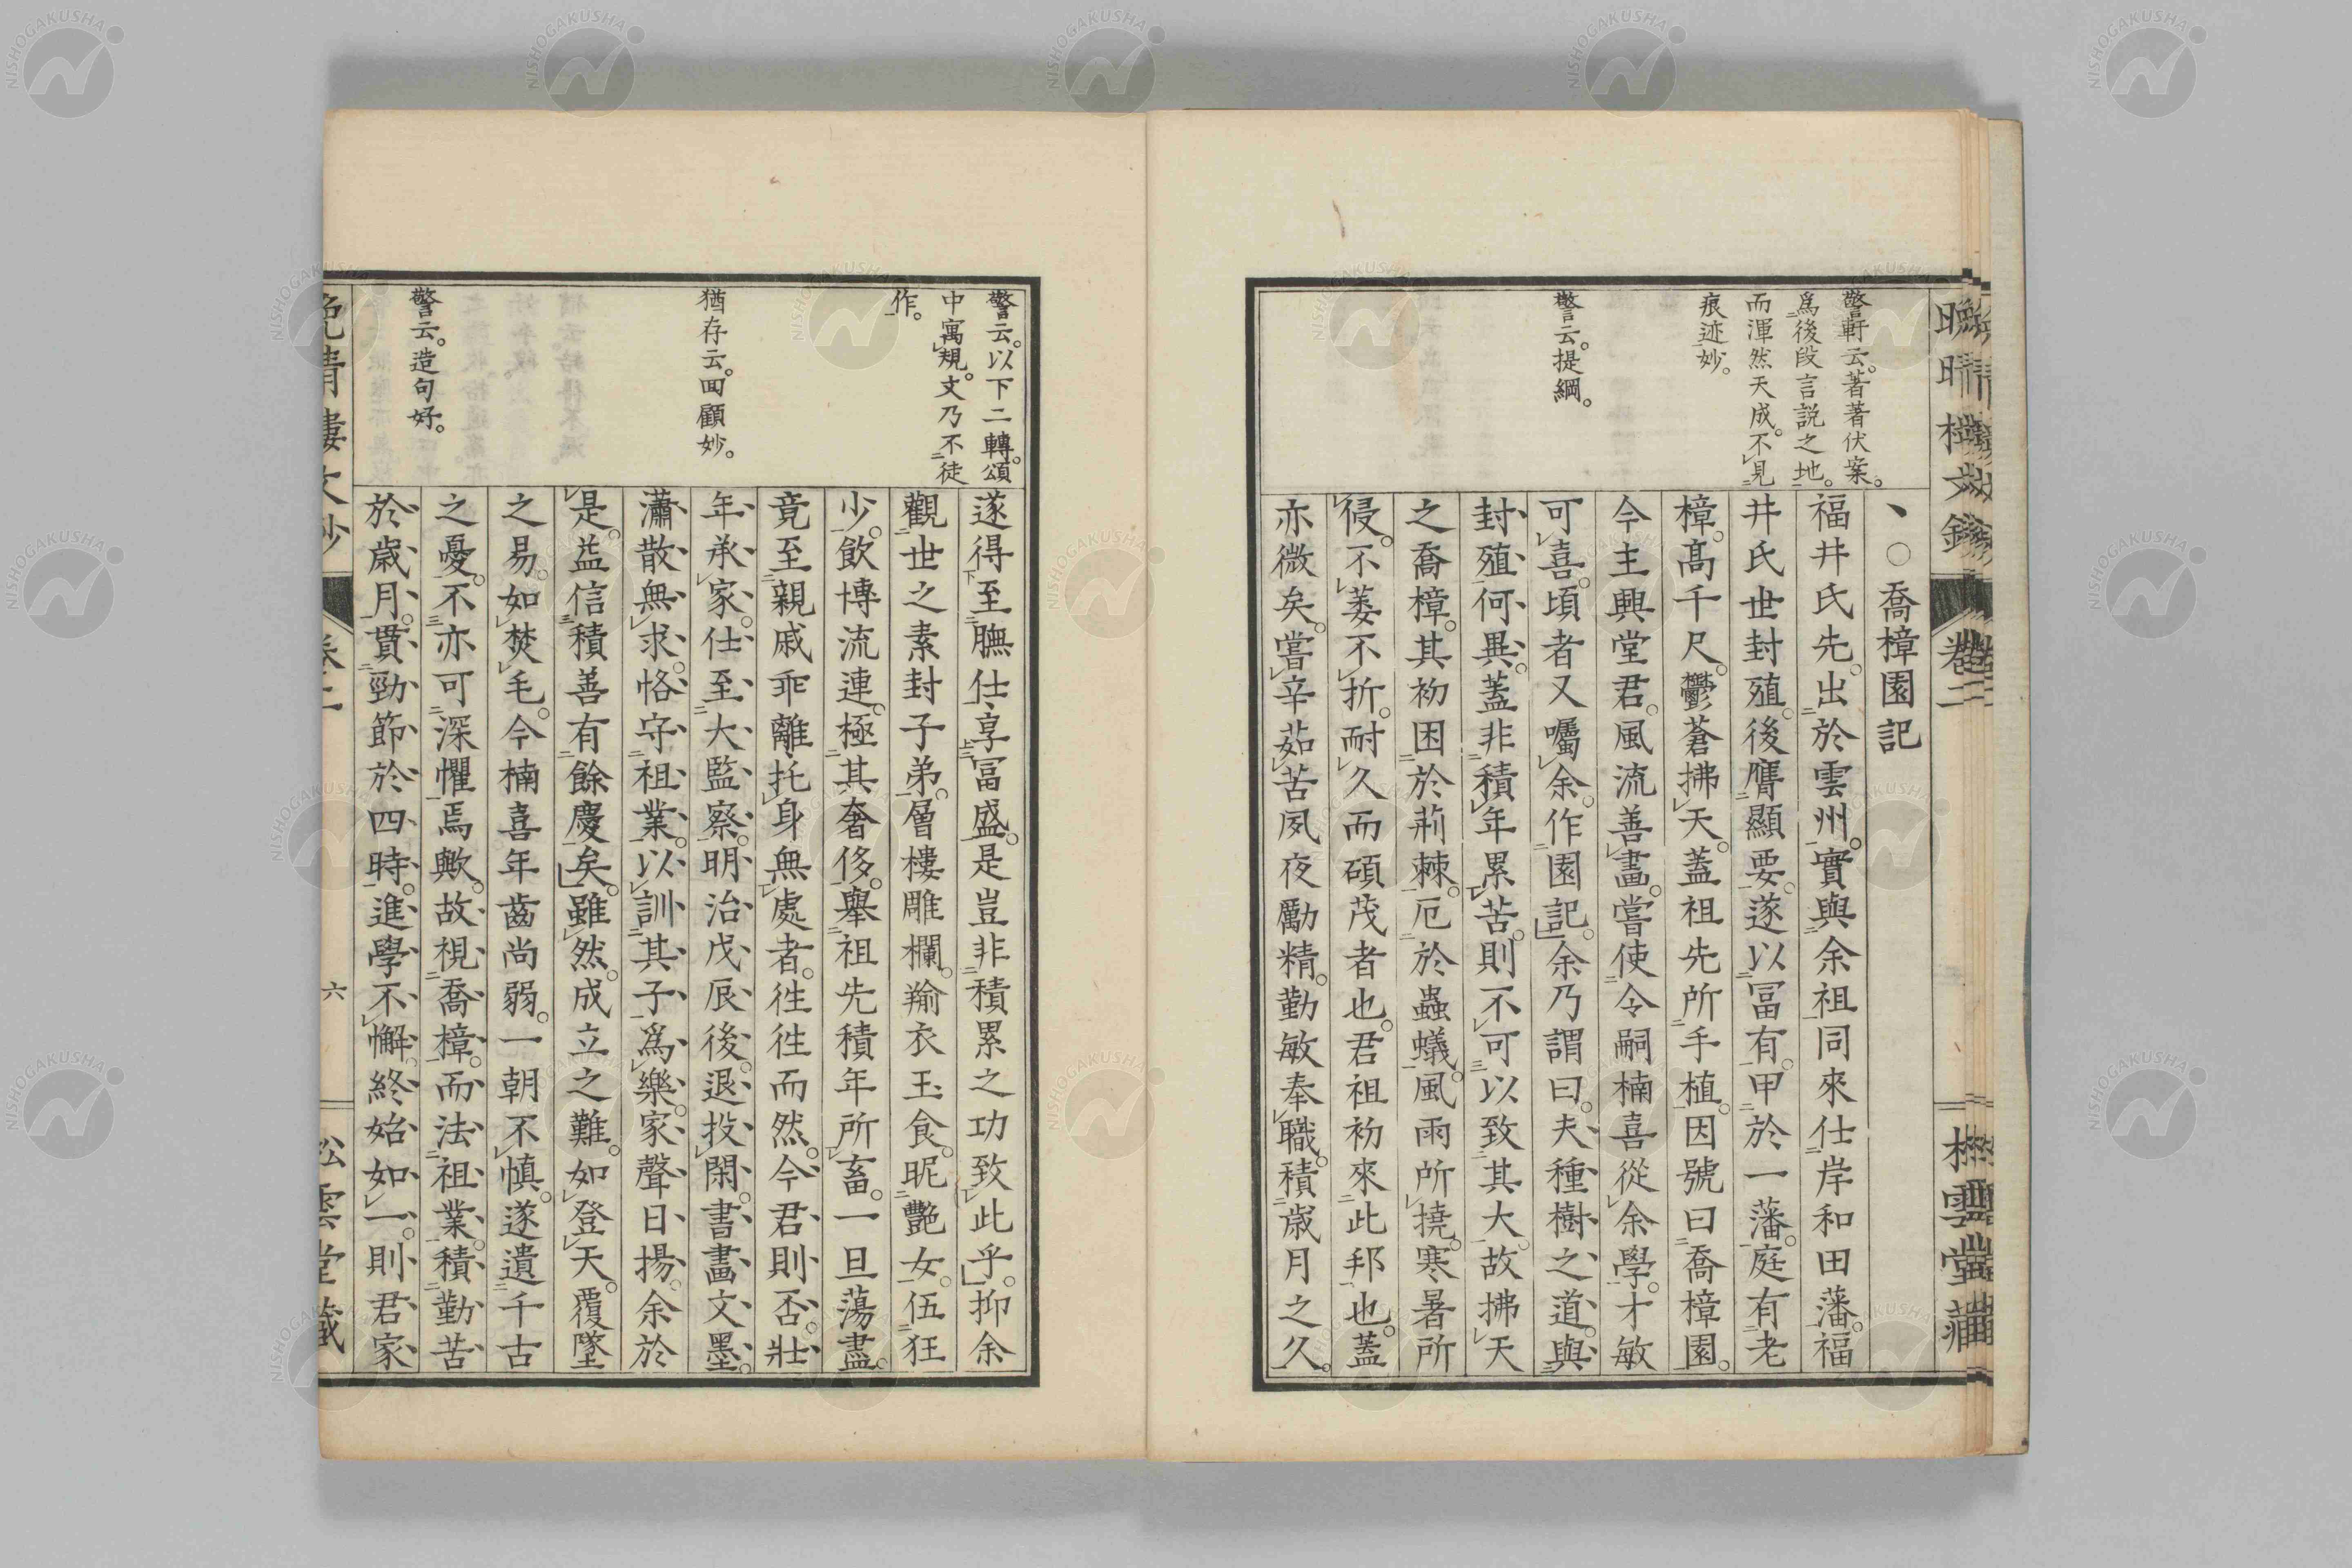 喬樟園記
福井氏先。出於雲州。實與余祖同來仕岸和田藩。福
井氏世封殖。後膺顯要。遂以冨有。甲於一藩。庭有老
樟。髙千尺。鬱蒼拂天。蓋祖先所手植。因號曰喬樟園。
今主興堂君。風流善畫。嘗使令嗣楠喜從余學。才敏
可喜。頃者又囑余。作園記。余乃謂曰。夫種樹之道。與
封殖何異。蓋非積年累苦。則不可以致其大。故拂天
之喬樟。其初困於荊棘。厄於蟲蟻。風雨所撓。寒暑所
侵。不萎不折。耐久而碩茂者也。君祖初來此邦也。蓋
亦微矣。嘗辛茹苦夙夜勵精。勤敏奉職。積歲月之久。
警軒云。著著伏案。
爲後段言説之地。
而渾然天成。不見
痕迹妙。
警云。提綱。
遂得至膴仕享冨盛。是豈非積累之功致此乎。抑余
觀世之素封子弟。層樓雕欄。羭衣玉食。昵艷女。伍狂
少。飲博流連。極其奢侈。舉祖先積年所畜。一旦蕩盡。
竟至親戚乖離托身無處者。徃徃而然。今君則否。壯
年承家。仕至大監察。明治戊辰後。退投閑。書畫文墨。
瀟散無求。恪守祖業。以訓其子爲樂。家聲日揚。余於
是。益信積善有餘慶矣。雖然。成立之難。如登天。覆墜
之易。如焚毛。今楠喜年齒尚弱。一朝不愼。遂遺千古
之憂。不亦可深懼焉歟。故視喬樟。而法祖業。積勤苦
於歲月。貫勁節於四時。進學不懈。終始如一。則君家
警云。以下二轉。頌
中寓規。文乃不徒
作。
猶存云。回顧妙。
警云。造句好。
六